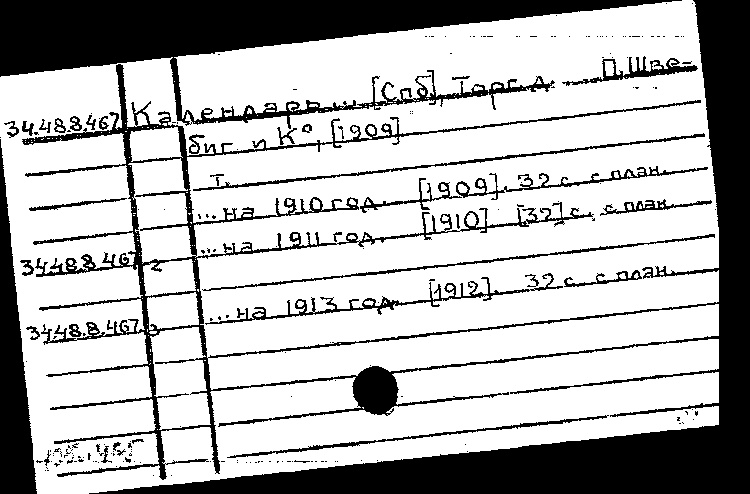 34.48.8.467 Календарь... [Спб], Торг. д. П. Шве-
биг и К°, [1909]
т.
...на 1910 год. [1909]. 32 с. с план.
...на 1911 год. [1910] [32] с. с план.
34.48.8.467 2
...на 1913 год. [1912]. 32 с. с план.
34.48.8.467 3